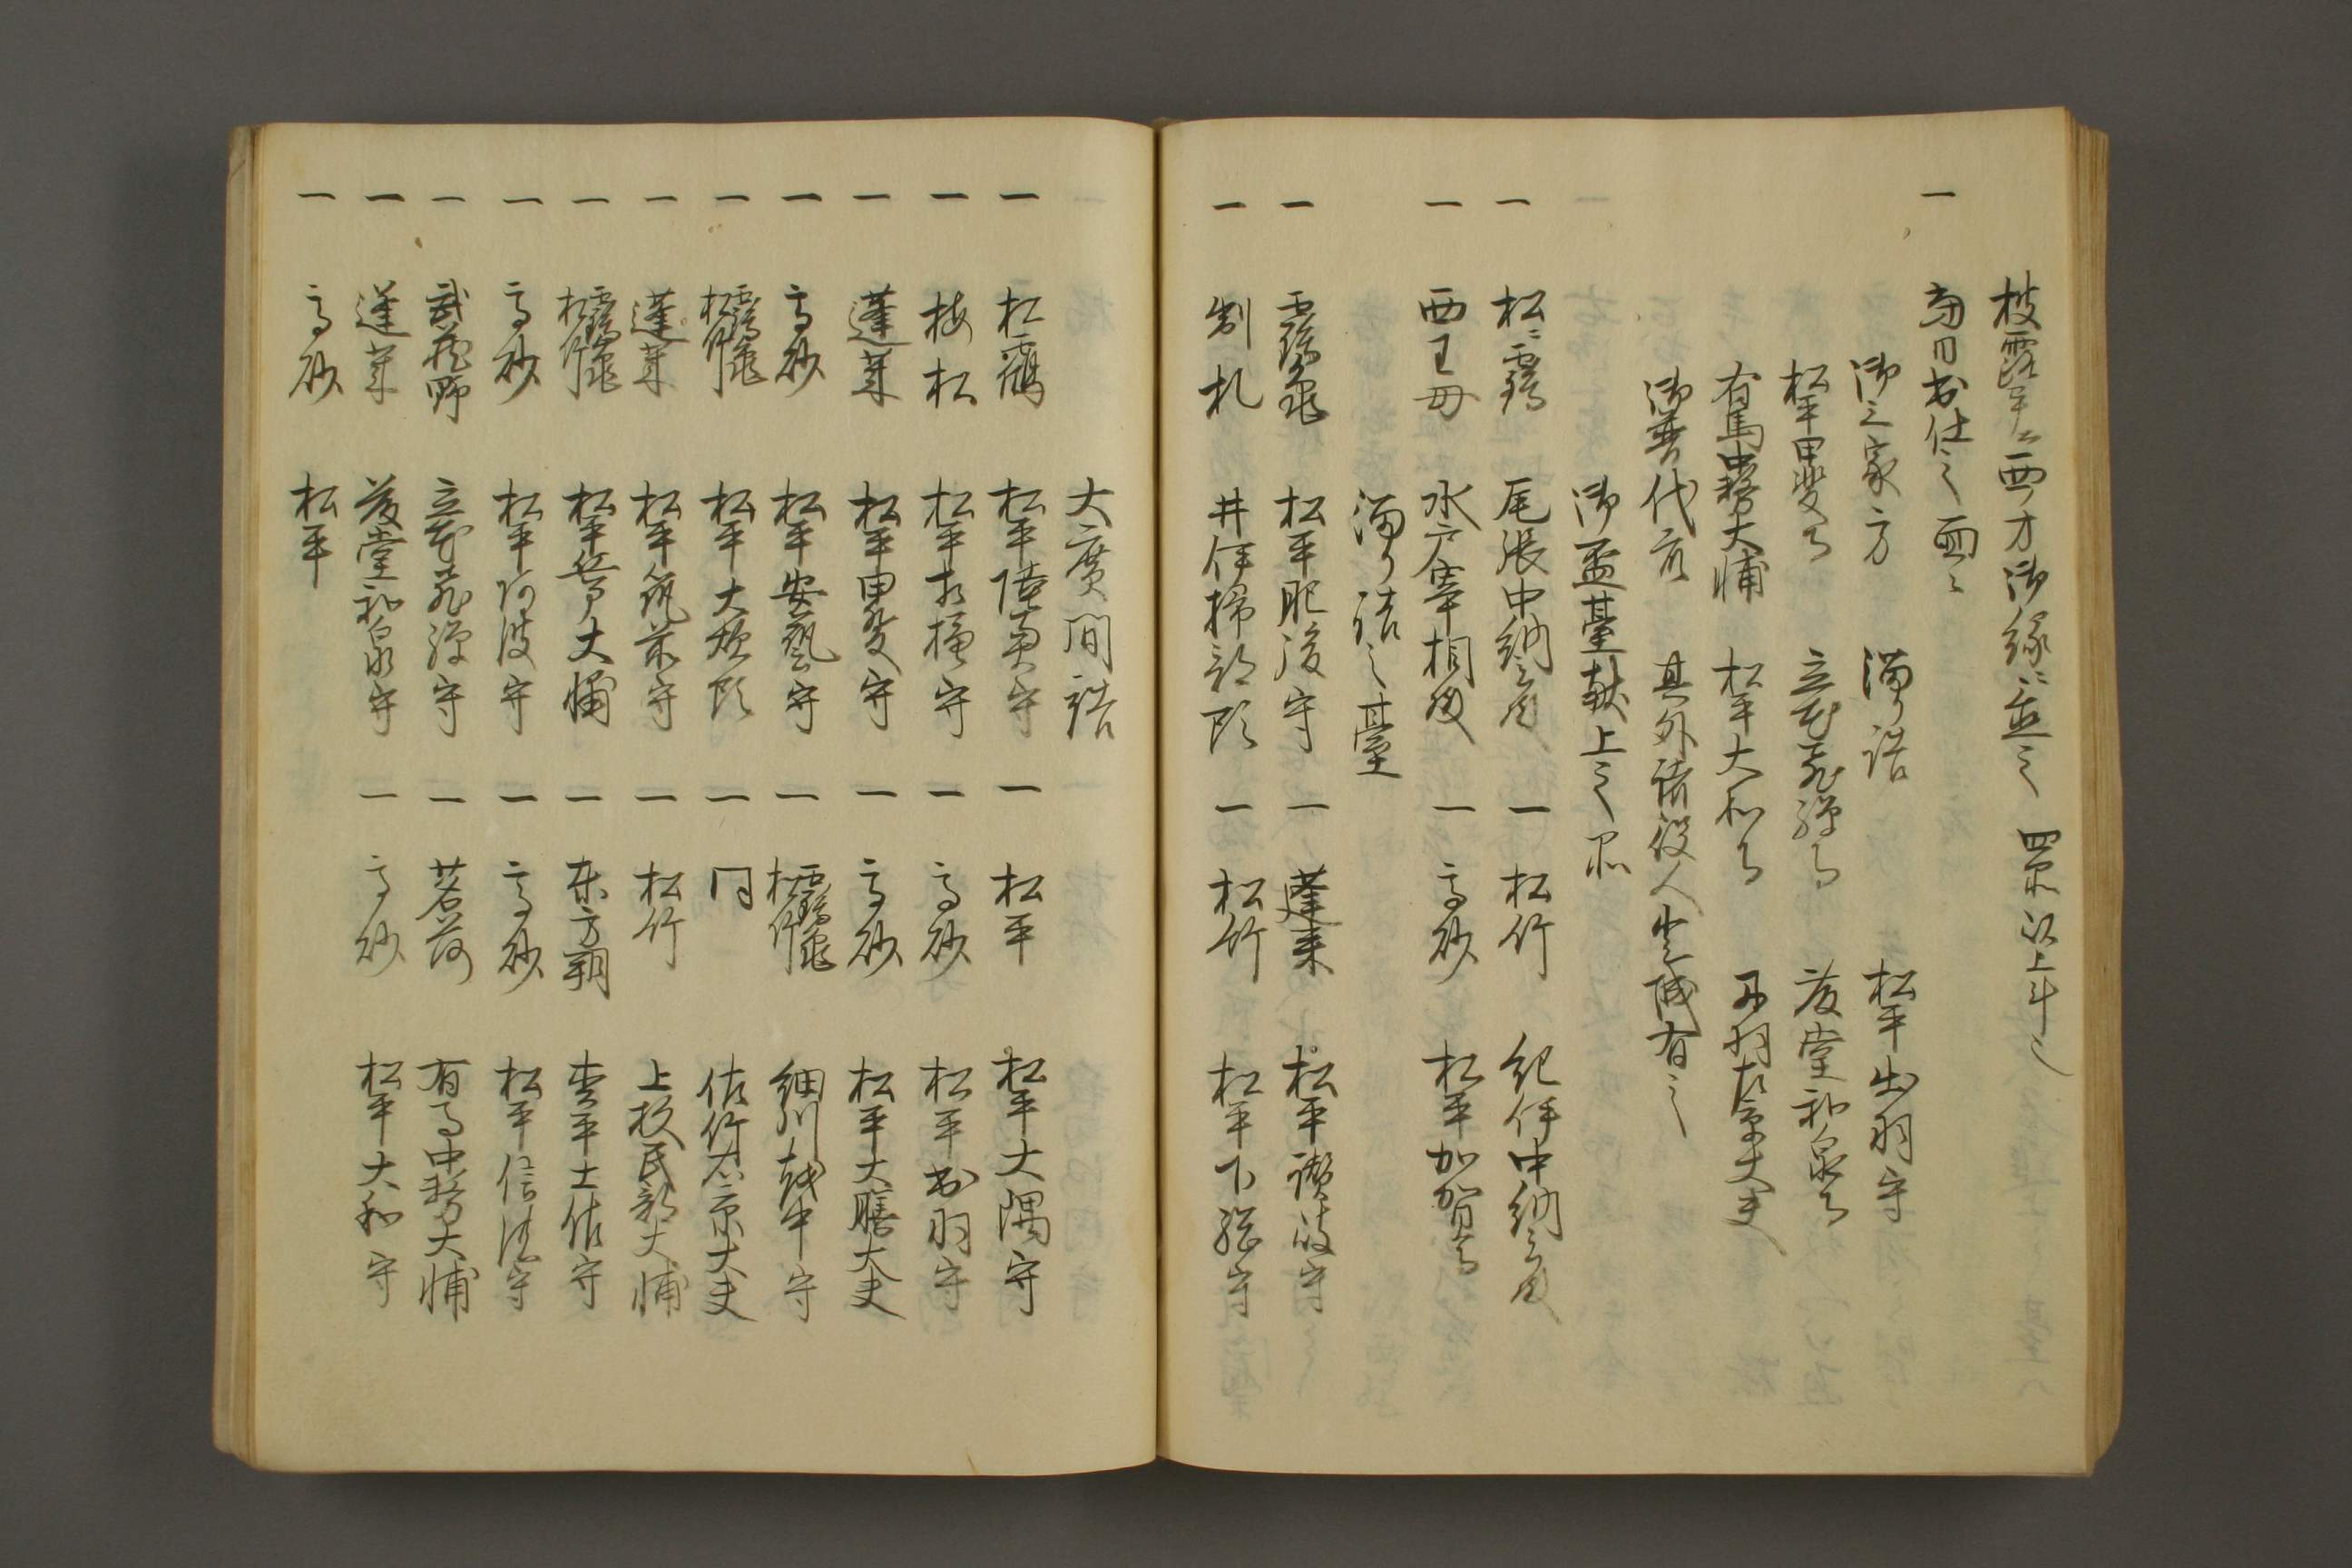 枝露臺西ノ方御縁ニ並之 四品以上斗之
一 当日出仕之面々
御三家方 溜詰 松平出羽守
松平甲斐守 立花飛騨守 藤堂和泉守
有馬中務大輔 松平大和守 丹羽左京大夫
御譜代衆 其外諸役人出仕有之
御盃臺献上之品
一 松ニ靍 尾張中納言殿 一 松竹 紀伊中納言殿
一 西王母 水戸宰相殿 一 高砂 松平加賀守
溜り詰之臺
一 靍亀 松平肥後守 一 蓬来 松平讃岐守
一 制札 井伊掃部頭 一 松竹 松平下総守
大廣間詰
一 松ニ鶴 松平陸奥守 一 松平 松平大隅守
一 梅松 松平相模守 一 高砂 松平出羽守
一 蓬莱 松平甲斐守 一 高砂 松平大膳大夫
一 高砂 松平安藝守 一 松竹靍亀 細川越中守
一 松竹靍亀 松平大炊頭 一 同 佐竹右京大夫
一 蓬莱 松平筑前守 一 松竹 上杦民部大輔
一 松竹靍亀 松平兵部大輔 一 東方朔 松平土佐守
一 高砂 松平阿波守 一 高砂 松平信濃守
一 武蔵野 立花飛騨守 一 茗荷 有馬中務大輔
一 蓬莱 藤堂和泉守 一 高砂 松平大和守
一 高砂 松平